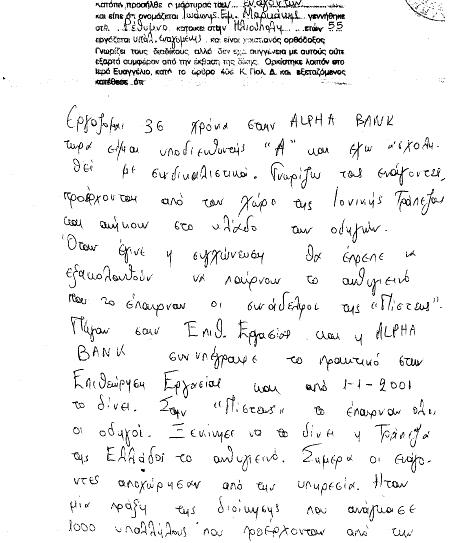 Κατόπιν προσήλθε ο μάρτυρας των εναγόντων
και είπε ότι ονομάζεται Ιωάννης Εμ. Μαρμάρης γεννήθηκε
στο Ρέθυμνο κατοικεί στην Ηλιούπολη ετών 55
εργάζεται υπάλ. εναγομένης και είναι χριστιανός ορθόδοξος
Γνωρίζει τους διαδίκους αλλά δεν έχει συγγένεια με αυτούς ούτε
εξαρτά συμφέρον από την έκβαση της δίκης. Ορκίστηκε λοιπόν στο
Ιερό Ευαγγέλιο, κατά το άρθρο 408 Κ. Πολ. Δ. και εξεταζόμενος
κατέθεσε ότι
Εργάζομαι 36 χρόνια στην ALPHA BANK
τώρα είμαι υποδιευθυντής "Α" και έχω ασχολη-
θεί με συνδικαλιστικά. Γνωρίζω τους ενάγοντες
προέρχονται από τον χώρο της Ιονικής Τράπεζας
και ανήκουν στο κλάδο των οδηγών.
Όταν έγινε η συγχώνευση θα έπρεπε να
εξακολουθούν να παίρνουν το ανθυγιεινό
που το έπαιρναν οι συνάδελφοι της "Πίστεως".
Πήγαν στην Επιθ. Εργασίας και η ALPHA
BANK συνυπέγραψε το πρακτικό στην
Επιθεώρηση Εργασίας και από 1-1-2001
το δίνει. Στην "Πίστεως" το έπαιρναν όλοι
οι οδηγοί. Ξεκίνησε να το δίνει η Τράπεζα
της Ελλάδος το ανθυγιεινό. Σήμερα οι ενάγο-
ντες αποχώρησαν από την υπηρεσία. Ήταν
μία πράξη της διοίκησης που ανάγκασε
1000 υπαλλήλους που προέρχονταν από την